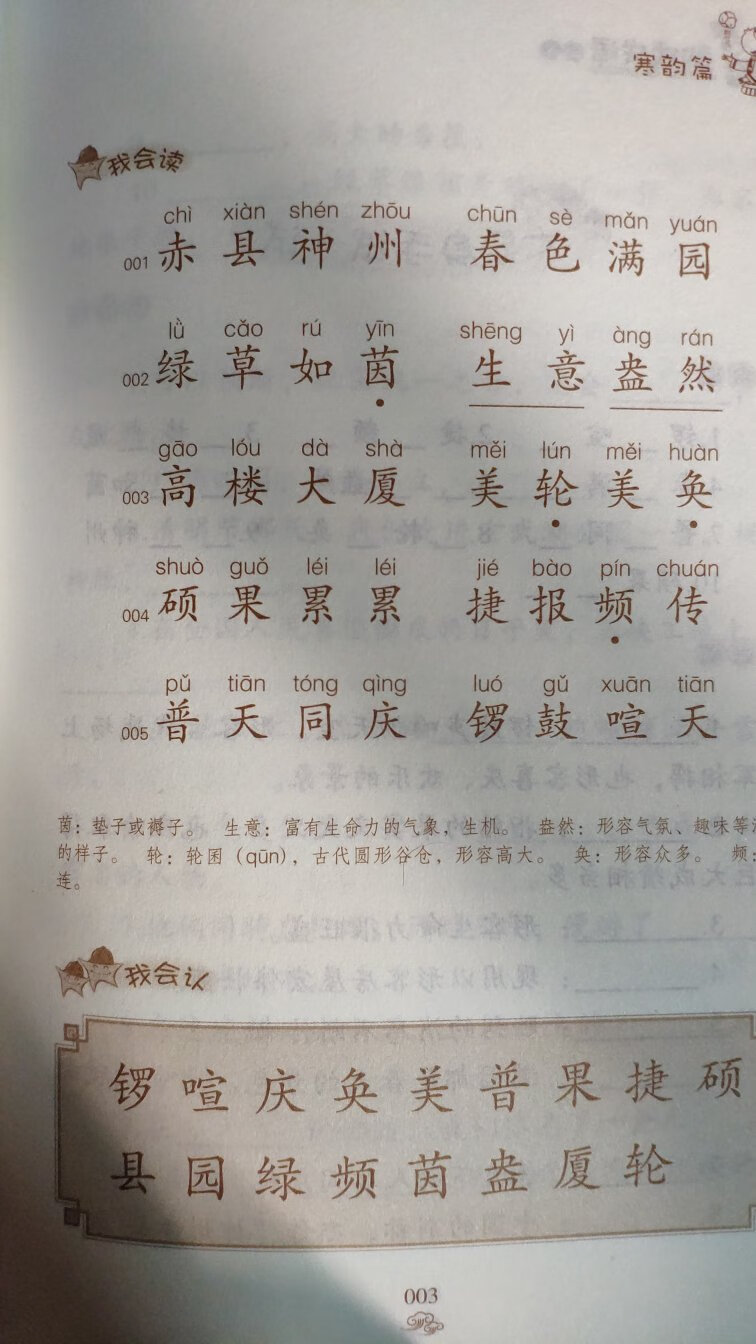 寒韵篇
我会读
chì xiàn shén zhōu chūn sè mǎn yuán
001 赤县神州 春色满园
lǜ cǎo rú yīn shēng yì àng rán
002 绿草如茵 生意盎然
gāo lóu dà shà měi lún měi huàn
003 高楼大厦 美轮美奂
shuò guǒ léi léi jié bào pín chuán
004 硕果累累 捷报频传
pǔ tiān tóng qìng luó gǔ xuān tiān
005 普天同庆 锣鼓喧天
茵：垫子或褥子。 生意：富有生命力的气象，生机。 盎然：形容气氛、趣味等
的样子。 轮：轮囷（qūn），古代圆形谷仓，形容高大。 奂：形容众多。 频：
连。
我会认
锣 喧 庆 奂 美 普 果 捷 硕
县 园 绿 频 茵 盎 厦 轮
003